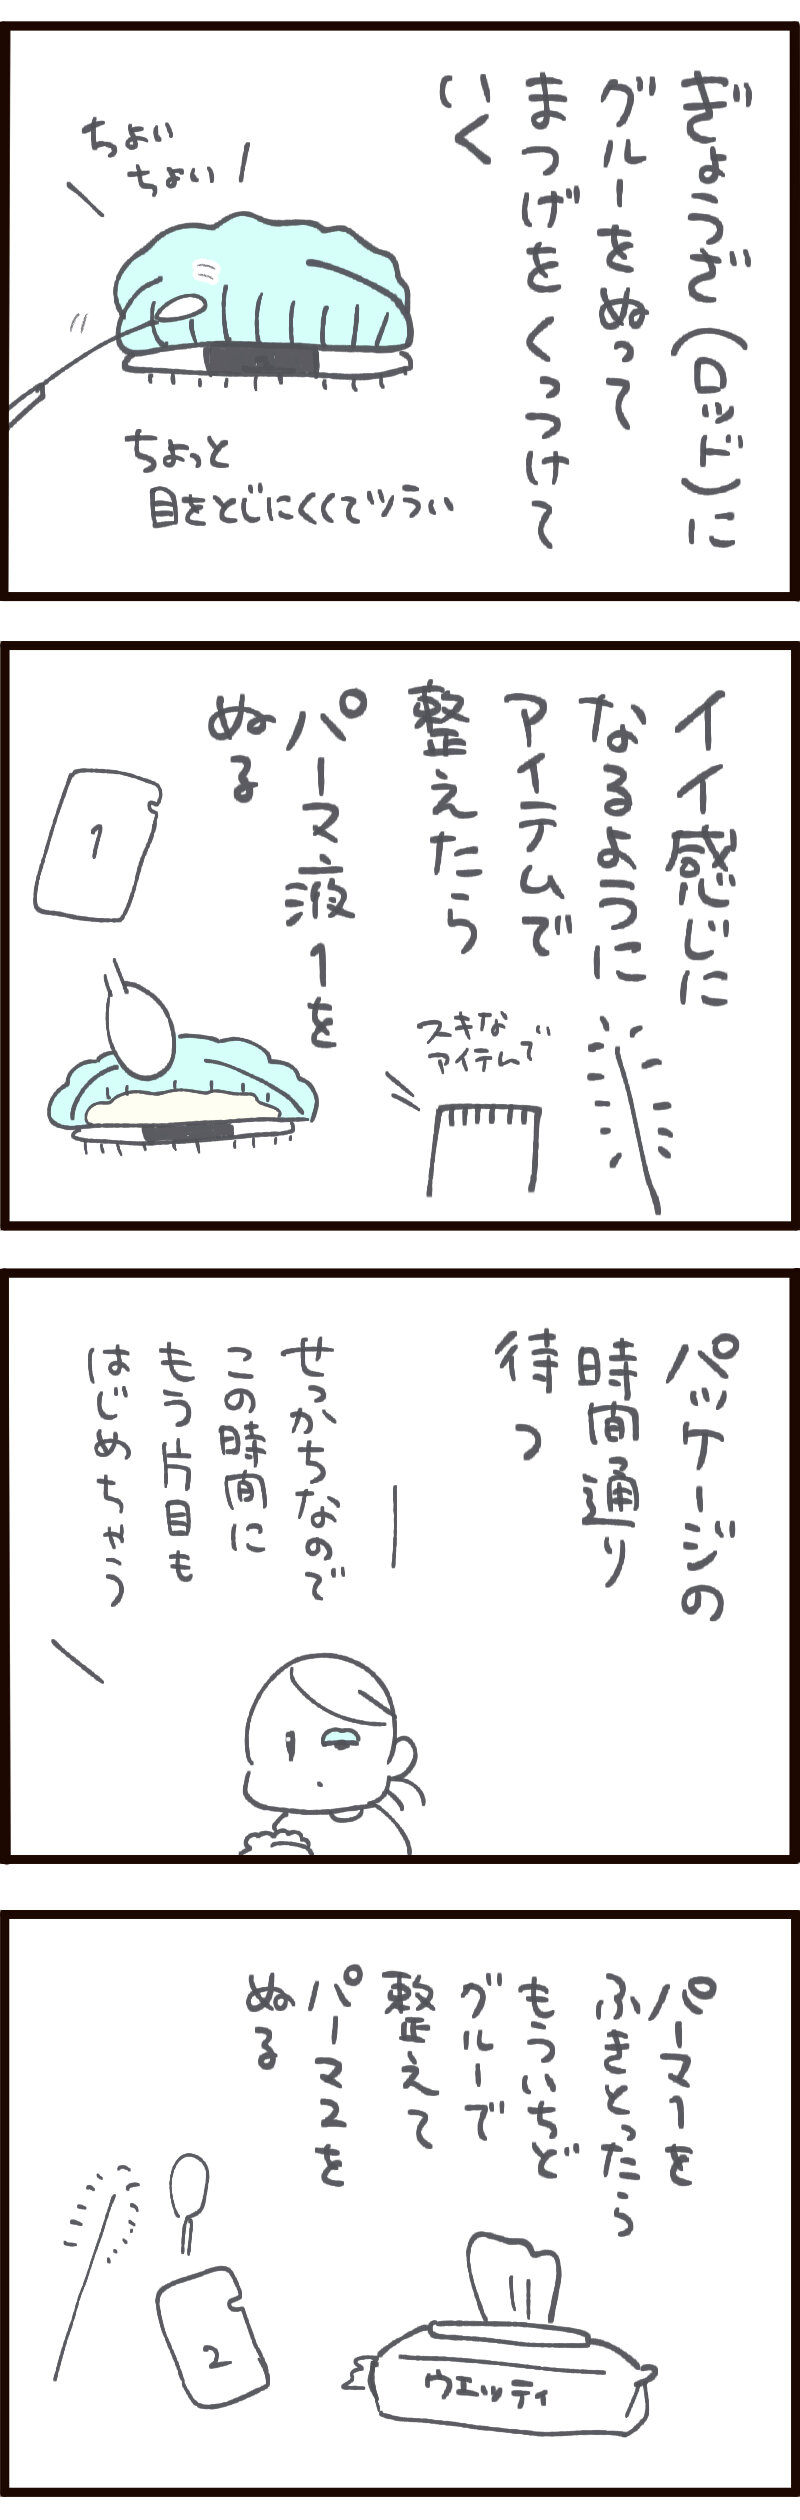 ぎょうざ(ロッド)に
グルーをぬって
まつげをくっつけて
いく
ちょい
ちょい
ちょっと
目をとじにくくてツラい
イイ感じに
なるように
アイテムで
整えたら
パーマ液1を
ぬる
スキな
アイテムで
1
パッケージの
時間通り
待つ
せっかちなので
この時間に
もう片目も
はじめちゃう
パーマ1を
ふきとったら
もういちど
グルーで
整えて
パーマ2を
ぬる
2
ウエッティ